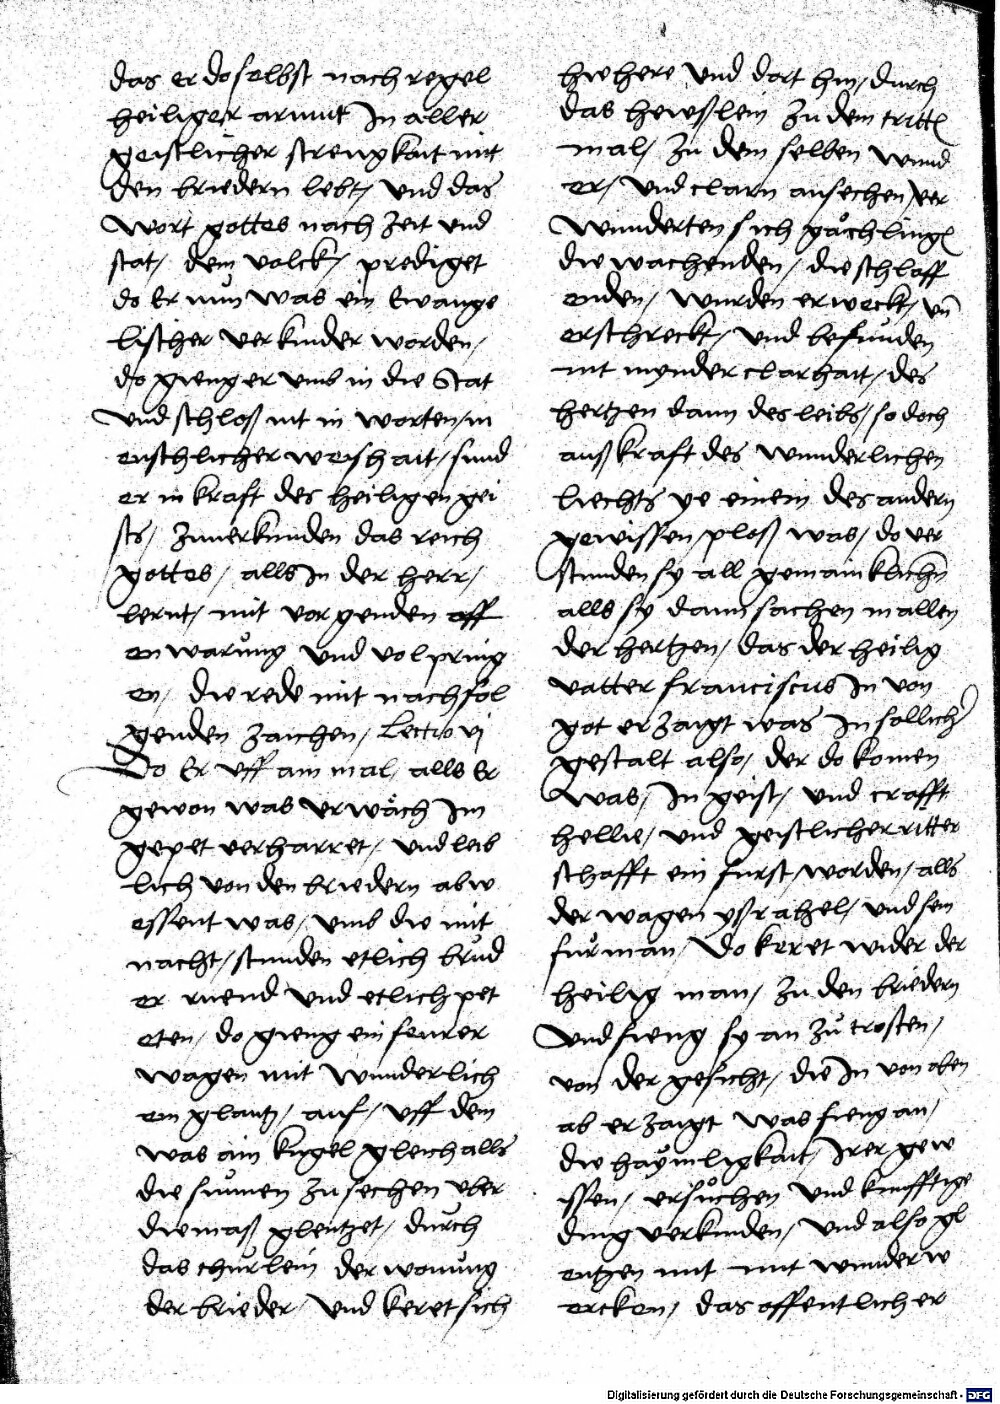 das er doselbst nach regel
heiliger armut In aller
geistlicher strengkait mit
den briedern lebt/ und das
Wort gottes nach zeit und
stat/ dem volck/ prediget
do Er nun was ein Ewange
lischer verkinder worden/
do gieng er umb in die Stat
und schloß nit in worten/ m
enschlicher weishait/ sund
er in kraft des heiligen gei
sts/ zuuerkunden das reich
gottes/ alls In der herr/
lernt/ mit vorgenden off
enwarung und volpring
en/ die rede mit nachfol
genden zaichen/ Lectio vj
Do Er uff ain mal/ alls Er
gewon was erwäch Im
gepet verharret/ und leib
lich von den briedern abw
essent was/ umb die mit
nacht/ stunden etlich brud
er ruend und etlich pet
eten/ do gieng ein feurer
wagen mit wunderlich
em glantz/ auf/ uff dem
was ain kugel gleich alls
die sunnen zu sechen uber
die maß glentzet/ durch
das thurlein der wonung
der brieder/ und keret sich
hiehere und dort hin/ durch
das hewslein zu dem tritt
mal/ zu dem selben wund
er/ und clarn ansechen/ ver
wunderten sich gächling
die wachenden/ die schlaff
enden/ wurden erweckt/ un̄
erschreckt/ und befunden
nit mynder clarhait/ des
hertzen dann des leibs/ so doch
auß kraft des wunderlichen
liechts ye einem des andern
gewissen/ ploß was/ do ver
stunden sy all gemainklichn̄
alls sy dann sachen in allen
der hertzen/ das der heilig
vatter franciscus In von
got erzaigt was In sollich
gestalt also/ der do komen
was/ In geist/ und crafft
hellie/ und geistlicher ritter
schafft ein furst/ worden/ alls
der wagen ysrahel/ und sein
furman/ Do keret wider der
heilig man/ zu den briedern
und fieng sy an zu trosten/
von der gesicht/ die In von oben
ab erzaigt was fieng an/
die haymligkait/ Irer gew
issen/ ersuchen und kunfftige
ding verkinden/ und also gl
entzen mit wunderw
ercken/ das offentlich er